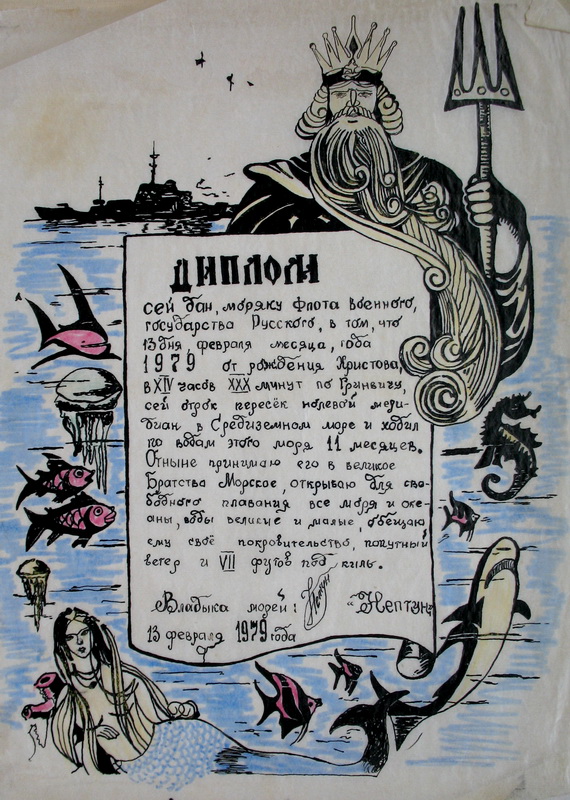 ДИПЛОМ
сей дан, моряку Флота Военного,
государства Русского, в том, что
13 дня, февраля месяца, года
1979 от рождения Христова,
в XIV часов XXX минут по Гринвичу,
сей отрок пересёк нолевой мери-
диан в Средиземном море и ходил
по водам этого моря 11 месяцев.
Отныне принимаю его в великое
Братства Морское, открываю для сво-
бодного плавания все моря и оке-
аны, воды великие и малые, обещаю
ему своё покровительство, попутный
ветер и VII футов под киль.
Владыка морей: "Нептун"
13 февраля 1979 года